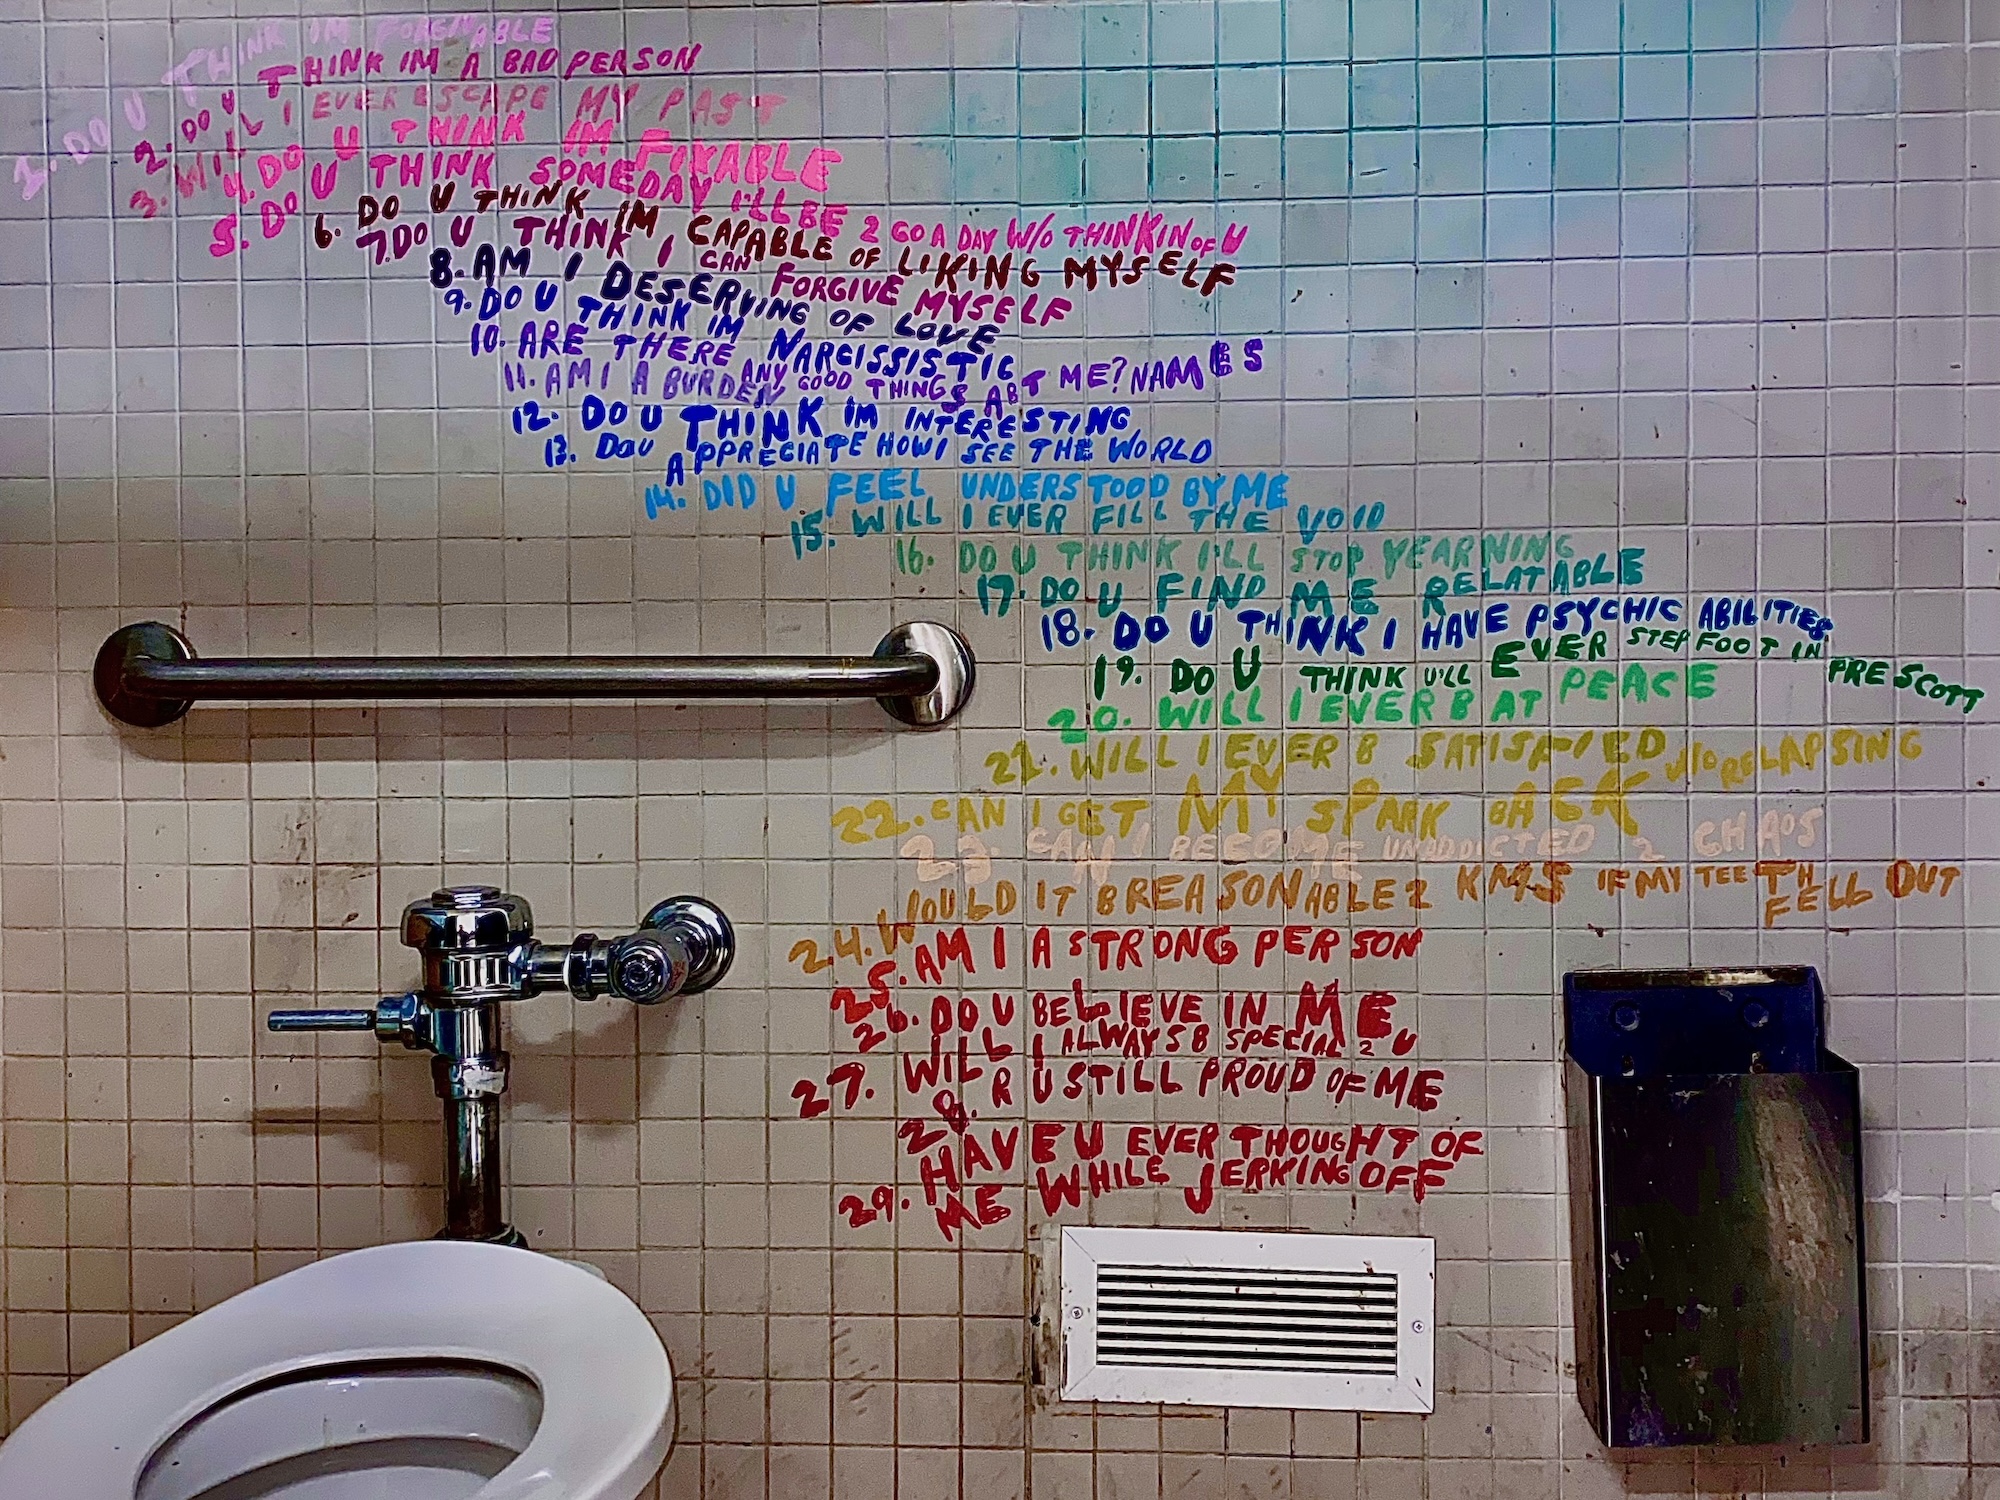 1. DO U THINK IM FORGIVABLE
2. DO U THINK IM A BAD PERSON
3. WILL I EVER ESCAPE MY PAST
4. DO U THINK IM FIXABLE
5. DO U THINK SOMEDAY I'LL BE 2 GO A DAY W/O THINKIN OF U
6. DO U THINK IM CAPABLE OF LIKING MYSELF
7. DO U THINK I CAN FORGIVE MYSELF
8. AM I DESERVING OF LOVE
9. DO U THINK IM NARCISSISTIC
10. ARE THERE ANY GOOD THINGS ABT ME? NAMES
11. AM I A BURDEN
12. DO U THINK IM INTERESTING
13. DO U APPRECIATE HOW I SEE THE WORLD
14. DID U FEEL UNDERSTOOD BY ME
15. WILL I EVER FILL THE VOID
16. DO U THINK I'LL STOP YEARNING
17. DO U FIND ME RELATABLE
18. DO U THINK I HAVE PSYCHIC ABILITIES
19. DO U THINK U'LL EVER STEP FOOT IN PRESCOTT
20. WILL I EVER B AT PEACE
21. WILL I EVER B SATISFIED W/O RELAPSING
22. CAN I GET MY SPARK BACK
23. CAN I BECOME UNADDICTED 2 CHAOS
24. WOULD IT B REASONABLE 2 KMS IF MY TEETH
FELL OUT
25. AM I A STRONG PERSON
26. DO U BELIEVE IN ME
27. WILL I ALWAYS B SPECIAL 2 U
28. R U STILL PROUD OF ME
29. HAVE U EVER THOUGHT OF
ME WHILE JERKING OFF